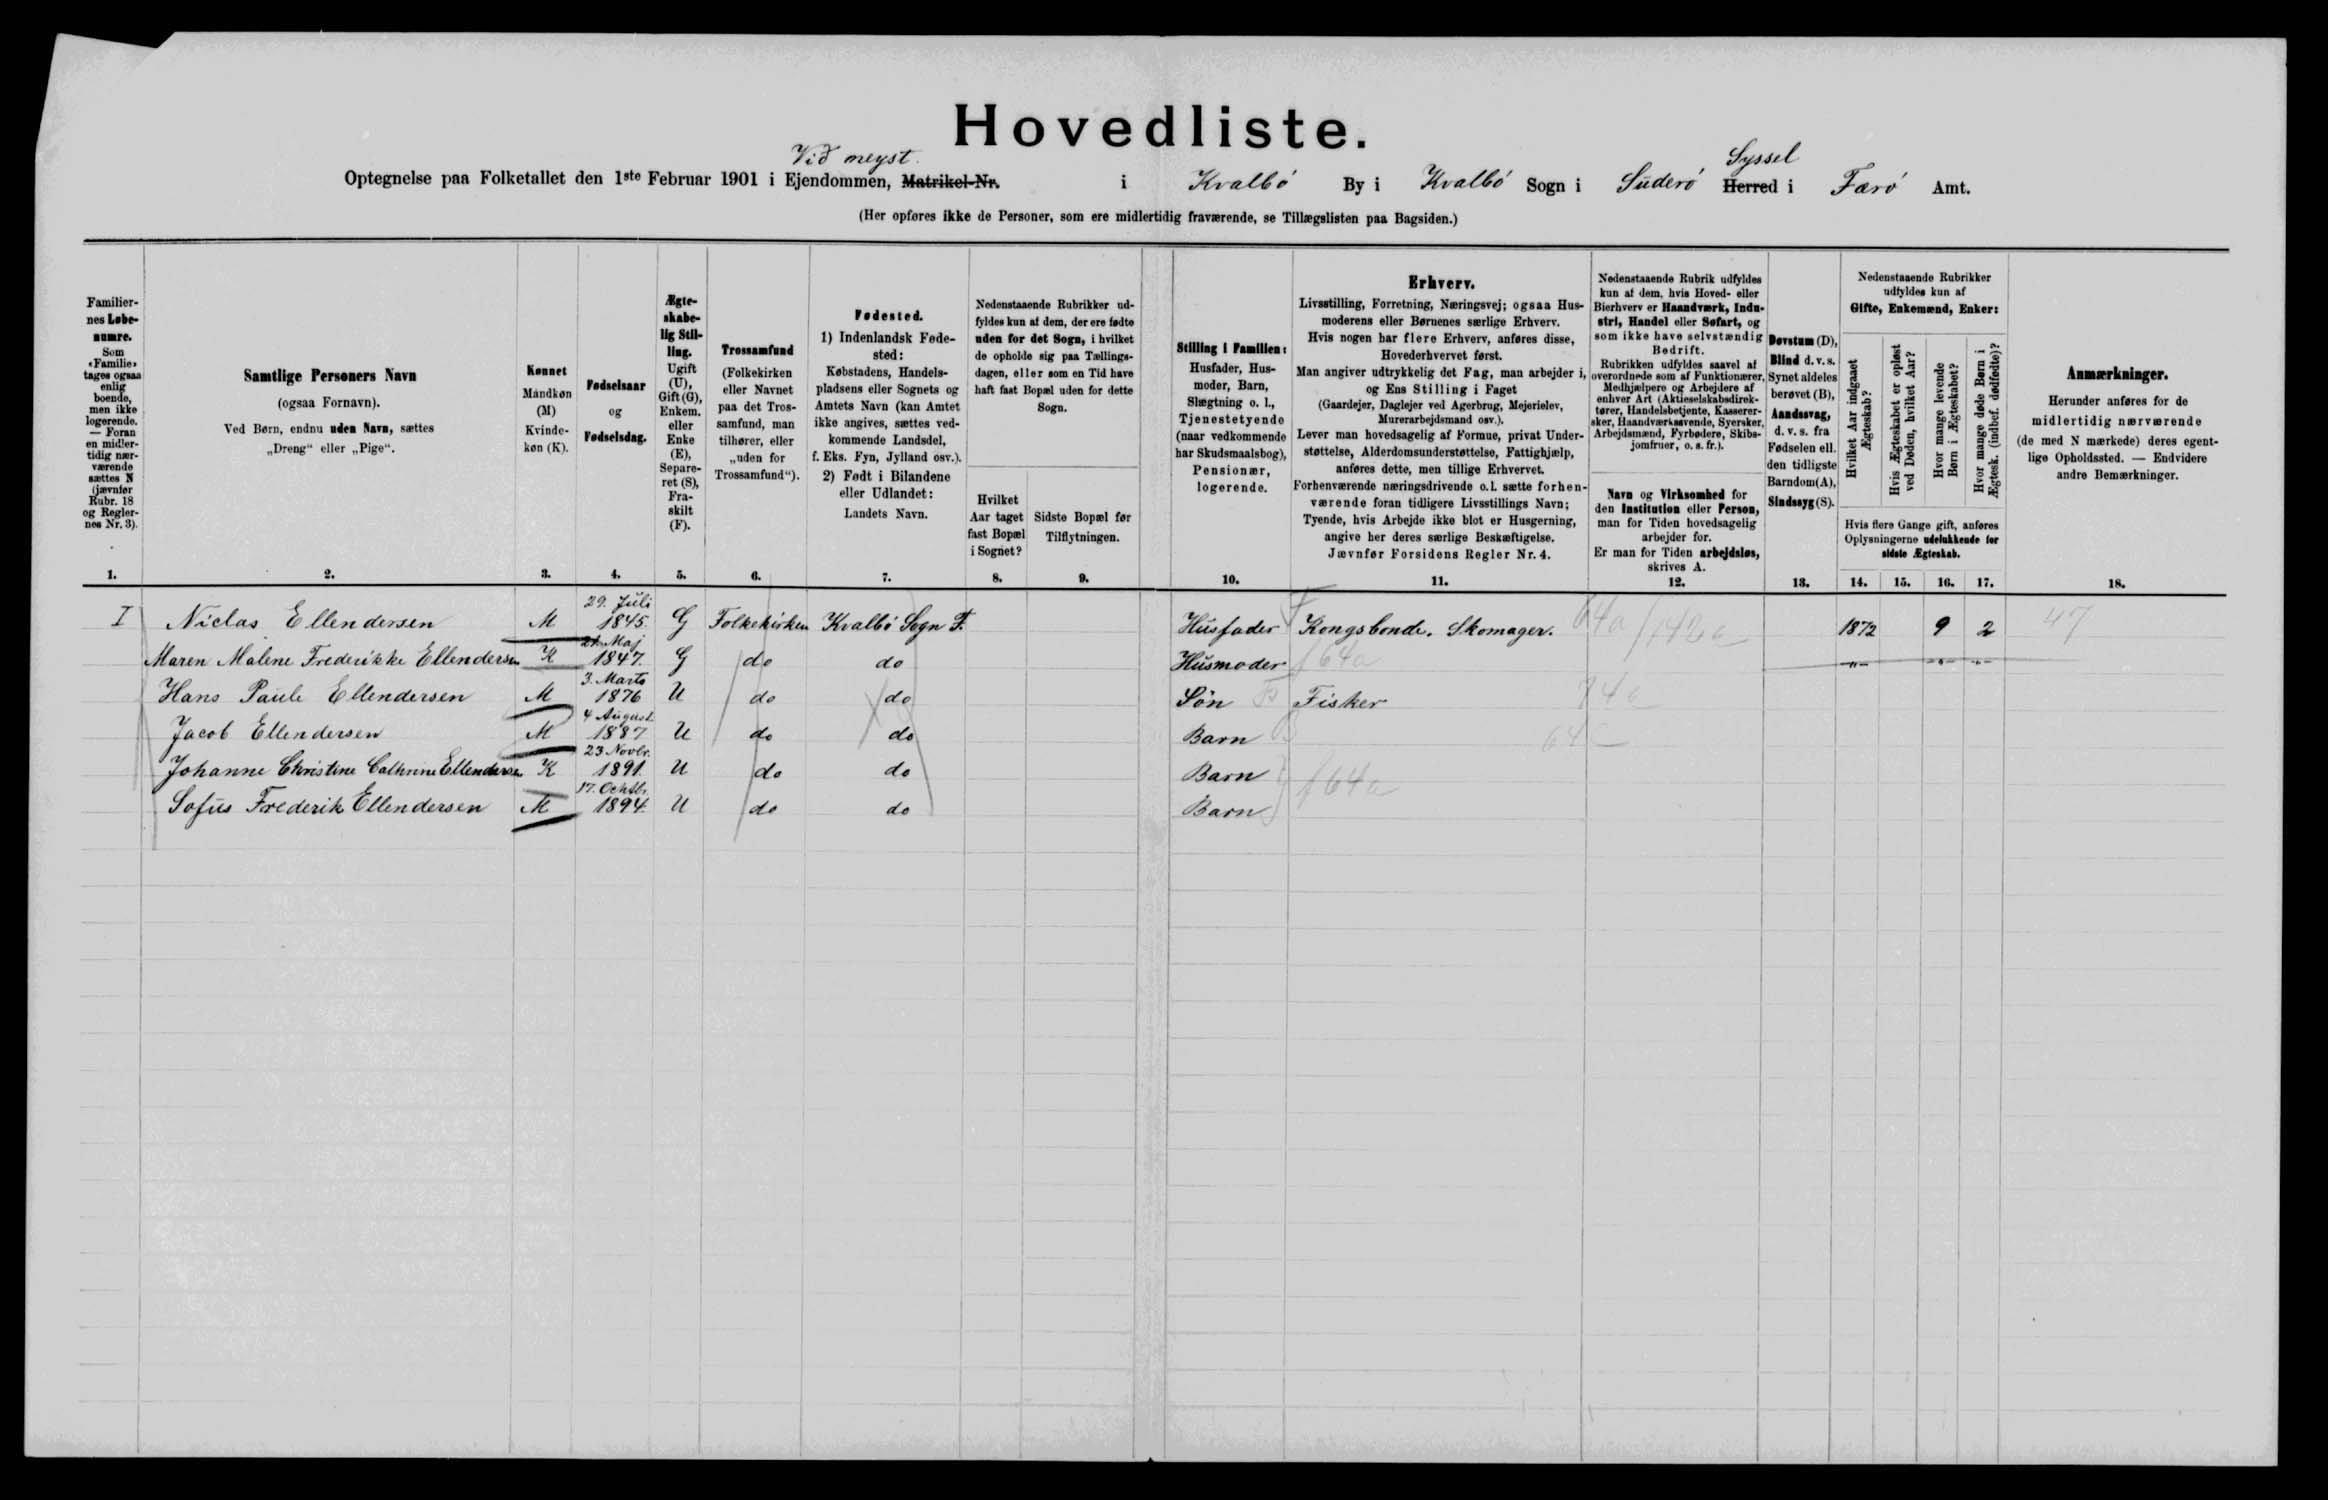 Hovedliste.
Við meyst.
Syssel
Optegnelse paa Folketallet den 1ste Februar 1901 i Ejendommen, Matrikel-Nr. i Kvalbó By i Kvalbó Sogn i Suderó Herred i Færó Amt.
(Her opføres ikke de Personer, som ere midlertidig fraværende, se Tillægslisten paa Bagsiden.)
Familier-
nes Løbe-
numre.
Som
«Familie»
tages ogsaa
enlig
boende,
men ikke
logerende.
— Foran
en midler-
tidig nær-
værende
sættes N
(jævnfør
Rubr. 18
og Regler-
nes Nr. 3).
1.
Samtlige Personers Navn
(ogsaa Fornavn).
Ved Børn, endnu uden Navn, sættes
„Dreng“ eller „Pige“.
2.
Kønnet
Mandkøn
(M)
Kvinde-
køn (K).
3.
Fødselsaar
og
Fødselsdag.
4.
Ægte-
skabe-
lig Stil-
ling.
Ugift
(U),
Gift (G),
Enkem.
eller
Enke
(E),
Separe-
ret (S),
Fra-
skilt
(F).
5.
Trossamfund
(Folkekirken
eller Navnet
paa det Tros-
samfund, man
tilhører, eller
„uden for
Trossamfund“).
6.
Fødested.
1) Indenlandsk Føde-
sted:
Købstadens, Handels-
pladsens eller Sognets og
Amtets Navn (kan Amtet
ikke angives, sættes ved-
kommende Landsdel,
f. Eks. Fyn, Jylland osv.).
2) Født i Bilandene
eller Udlandet:
Landets Navn.
7.
Nedenstaaende Rubrikker ud-
fyldes kun af dem, der ere fødte
uden for det Sogn, i hvilket
de opholde sig paa Tællings-
dagen, eller som en Tid have
haft fast Bopæl uden for dette
Sogn.
Hvilket
Aar taget
fast Bopæl
i Sognet?
8.
Sidste Bopæl før
Tilflytningen.
9.
Stilling i Familien:
Husfader, Hus-
moder, Barn,
Slægtning o. l.,
Tjenestetyende
(naar vedkommende
har Skudsmaalsbog),
Pensionær,
logerende.
10.
Erhverv.
Livsstilling, Forretning, Næringsvej; ogsaa Hus-
moderens eller Børnenes særlige Erhverv.
Hvis nogen har flere Erhverv, anføres disse,
Hovederhvervet først.
Man angiver udtrykkelig det Fag, man arbejder i,
og Ens Stilling i Faget
(Gaardejer, Daglejer ved Agerbrug, Mejerielev,
Murerarbejdsmand osv.).
Lever man hovedsagelig af Formue, privat Under-
støttelse, Alderdomsunderstøttelse, Fattighjælp,
anføres dette, men tillige Erhvervet.
Forhenværende næringsdrivende o. l. sætte forhen-
værende foran tidligere Livsstillings Navn;
Tyende, hvis Arbejde ikke blot er Husgerning,
angive her deres særlige Beskæftigelse.
Jævnfør Forsidens Regler Nr. 4.
11.
Nedenstaaende Rubrik udfyldes
kun af dem, hvis Hoved- eller
Bierhverv er Haandværk, Indu-
stri, Handel eller Søfart, og
som ikke have selvstændig
Bedrift.
Rubrikken udfyldes saavel af
overordnede som af Funktionærer,
Medhjælpere og Arbejdere af
enhver Art (Aktieselskabsdirek-
tører, Handelsbetjente, Kasserer-
sker, Haandværkssvende, Syersker,
Arbejdsmænd, Fyrbødere, Skibs-
jomfruer, o. s. fr.).
Navn og Virksomhed for
den Institution eller Person,
man for Tiden hovedsagelig
arbejder for.
Er man for Tiden arbejdsløs,
skrives A.
12.
Døvstum (D),
Blind d. v. s.
Synet aldeles
berøvet (B),
Aandssvag,
d. v. s. fra
Fødselen ell.
den tidligste
Barndom (A),
Sindssyg (S).
13.
Nedenstaaende Rubrikker
udfyldes kun af
Gifte, Enkemænd, Enker:
Hvilket Aar indgaaet
Ægteskab?
Hvis Ægteskabet er opløst
ved Døden, hvilket Aar?
Hvor mange levende
Børn i Ægteskabet?
Hvor mange døde Børn i
Ægtesk. (indbef. dødfødte)?
Hvis flere Gange gift, anføres
Oplysningerne udelukkende for
sidste Ægteskab.
14. 15. 16. 17.
Anmærkninger.
Herunder anføres for de
midlertidig nærværende
(de med N mærkede) deres egent-
lige Opholdssted. — Endvidere
andre Bemærkninger.
18.
I Niclas Ellendersen M 29. Juli 1845. G Folkekirken Kvalbó Sogn F. Husfader Kongsbonde. Skomager. 64a/142a 1872 9 2 47
Maren Malene Frederikke Ellendersen K 21. Maj 1847. G do do Husmoder f 64a -"- -"- -"-
Hans Paule Ellendersen M 3. Marts 1876 U do do Sön Fisker 74a
Jacob Ellendersen M 4 August 1887 U do do Barn
Johanne Christine Cathrine Ellendersen K 23 Novbr. 1891. U do do Barn f 64a
Sofus Frederik Ellendersen M 17. Octbr. 1894. U do do Barn